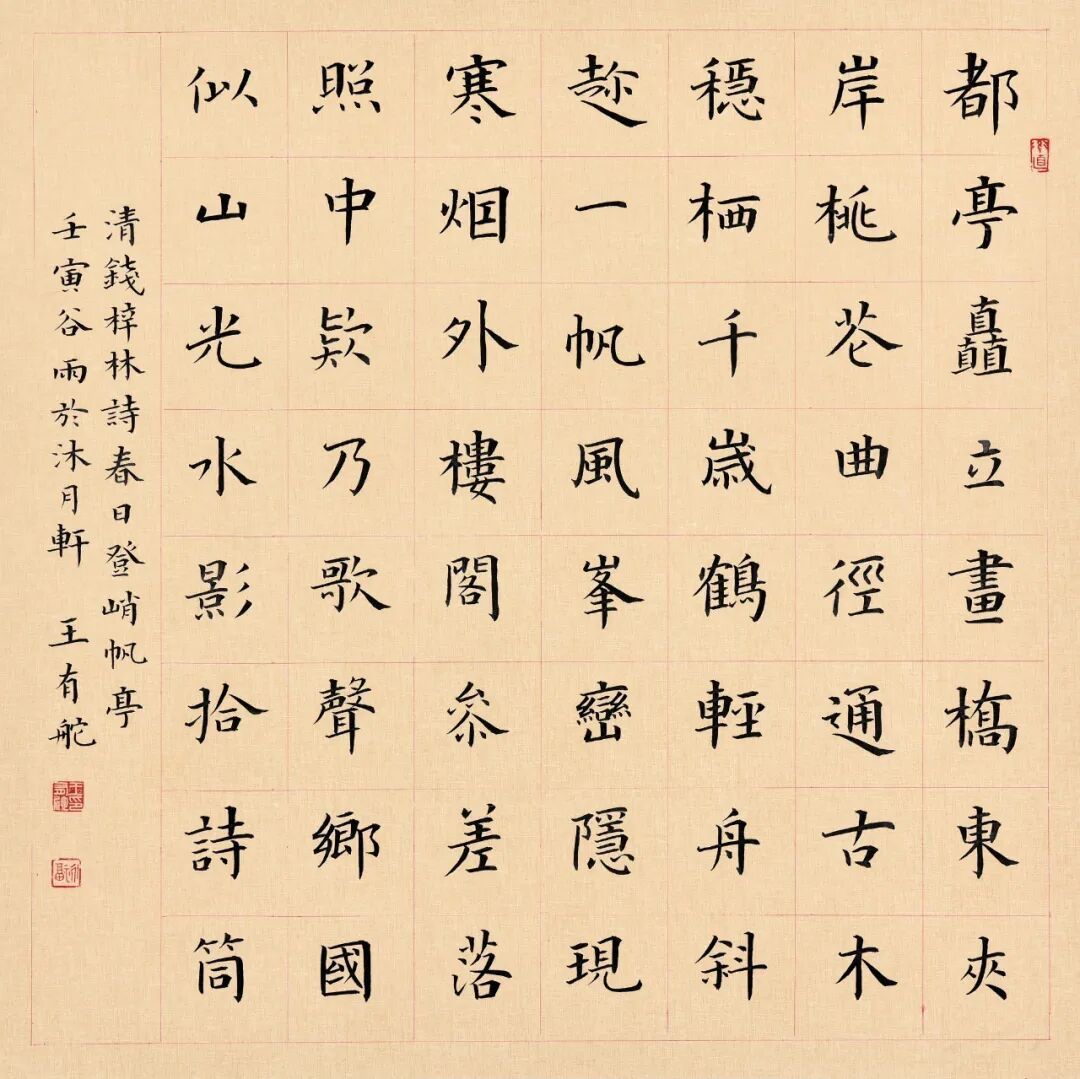 都亭矗立畫橋東夾
岸桃花曲徑通古木
穩栖千歲鶴輕舟斜
趂一帆風峯巒隱現
寒烟外樓閣叅差落
照中欵乃歌聲鄉國
似山光水影拾詩筒
清錢梓林詩春日登峭帆亭
壬寅谷雨於沐月軒 王有舵